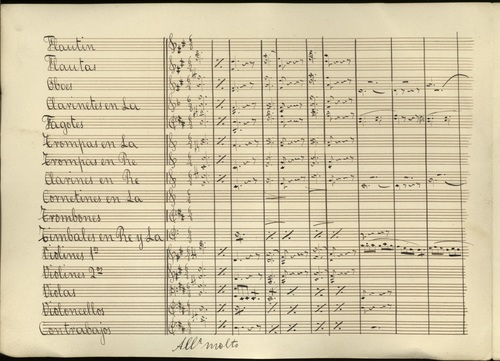 Flautin
Flautas
Oboes
Clarinetes en La
Fagotes
Trompas en La
Trompas en Re
Clarines en Re
Cornetines en La
Trombones
Timbales en Re y La
Violines 1os
Violines 2os
Violas
Violoncellos
Contrabajos
All° molto